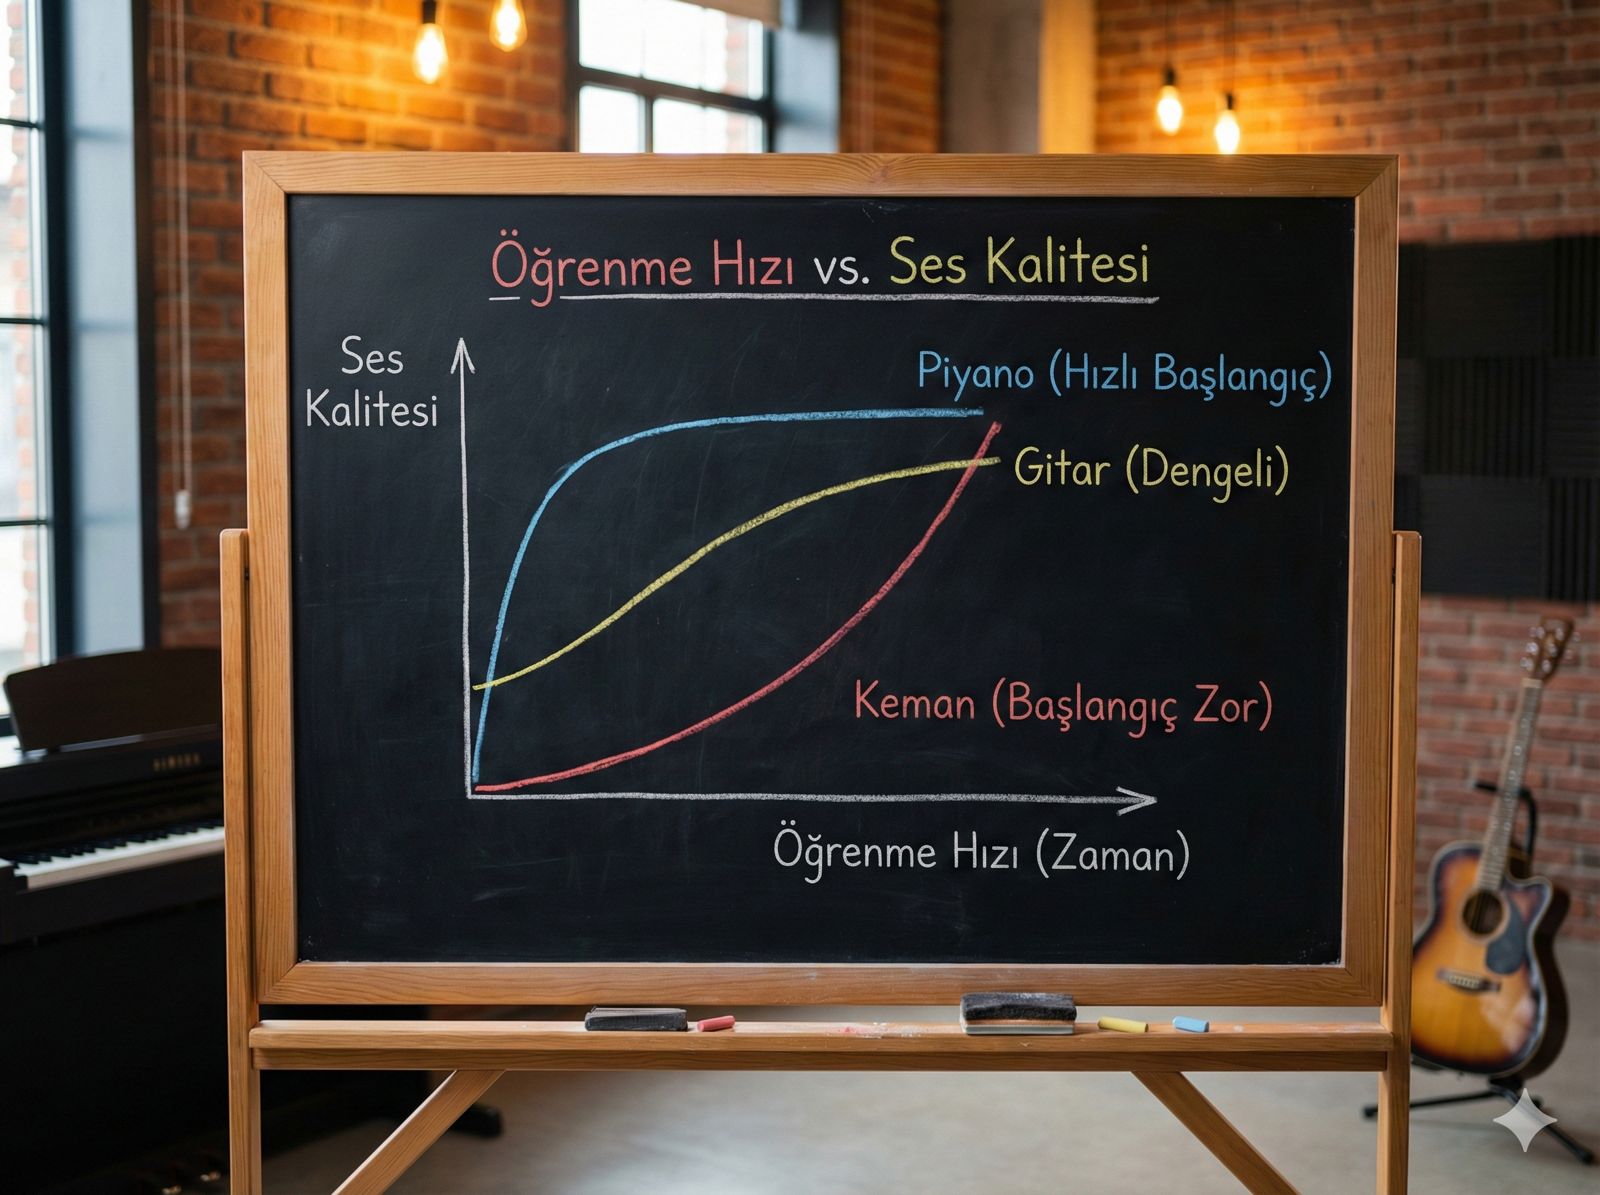 Öğrenme Hızı vs. Ses Kalitesi
Ses
Kalitesi
Piyano (Hızlı Başlangıç)
Gitar (Dengeli)
Keman (Başlangıç Zor)
Öğrenme Hızı (Zaman)